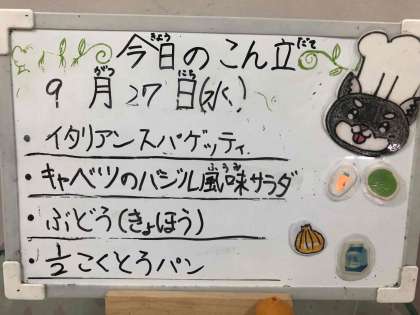 今日のこん立
きょう
だて
9月27日(水)
がつ
にち
・イタリアンスパゲッティ
・キャベツのバジル風味サラダ
ふうみ
・ぶどう(きょほう)
・1/2こくとうパン